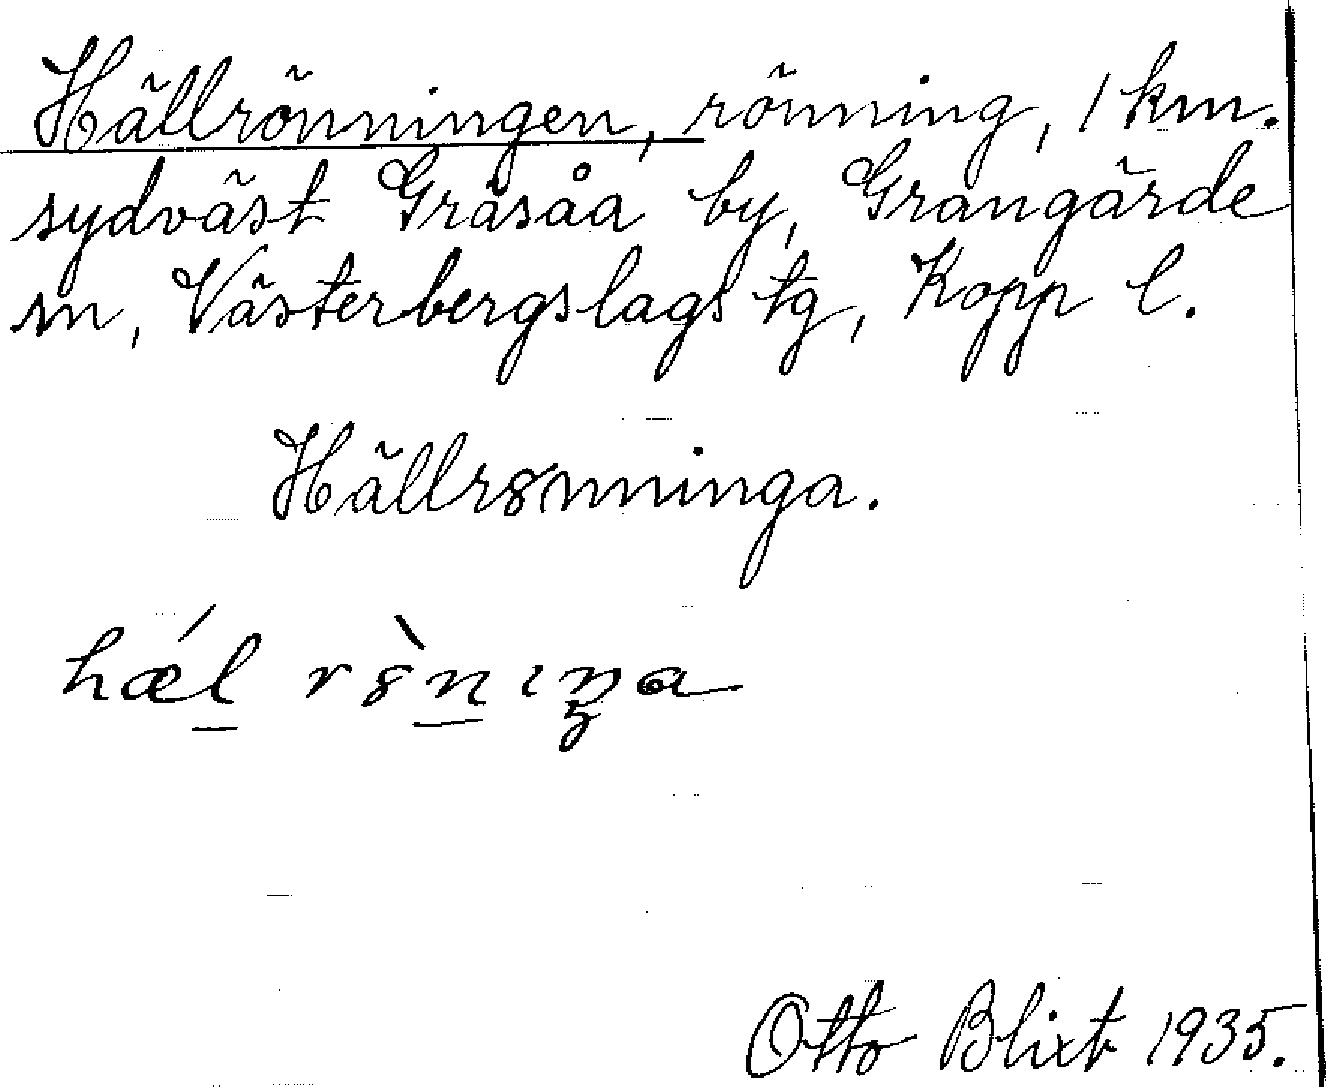 Hällrönningen, rönning, 1 km.
sydväst Gräsåa by, Grangärde
sn, Västerbergslags tg, Kopp l.
Hällrȣnninga.
hǽl̲ rȣ̀n̲ ıŋa
Otto Blixt 1935.